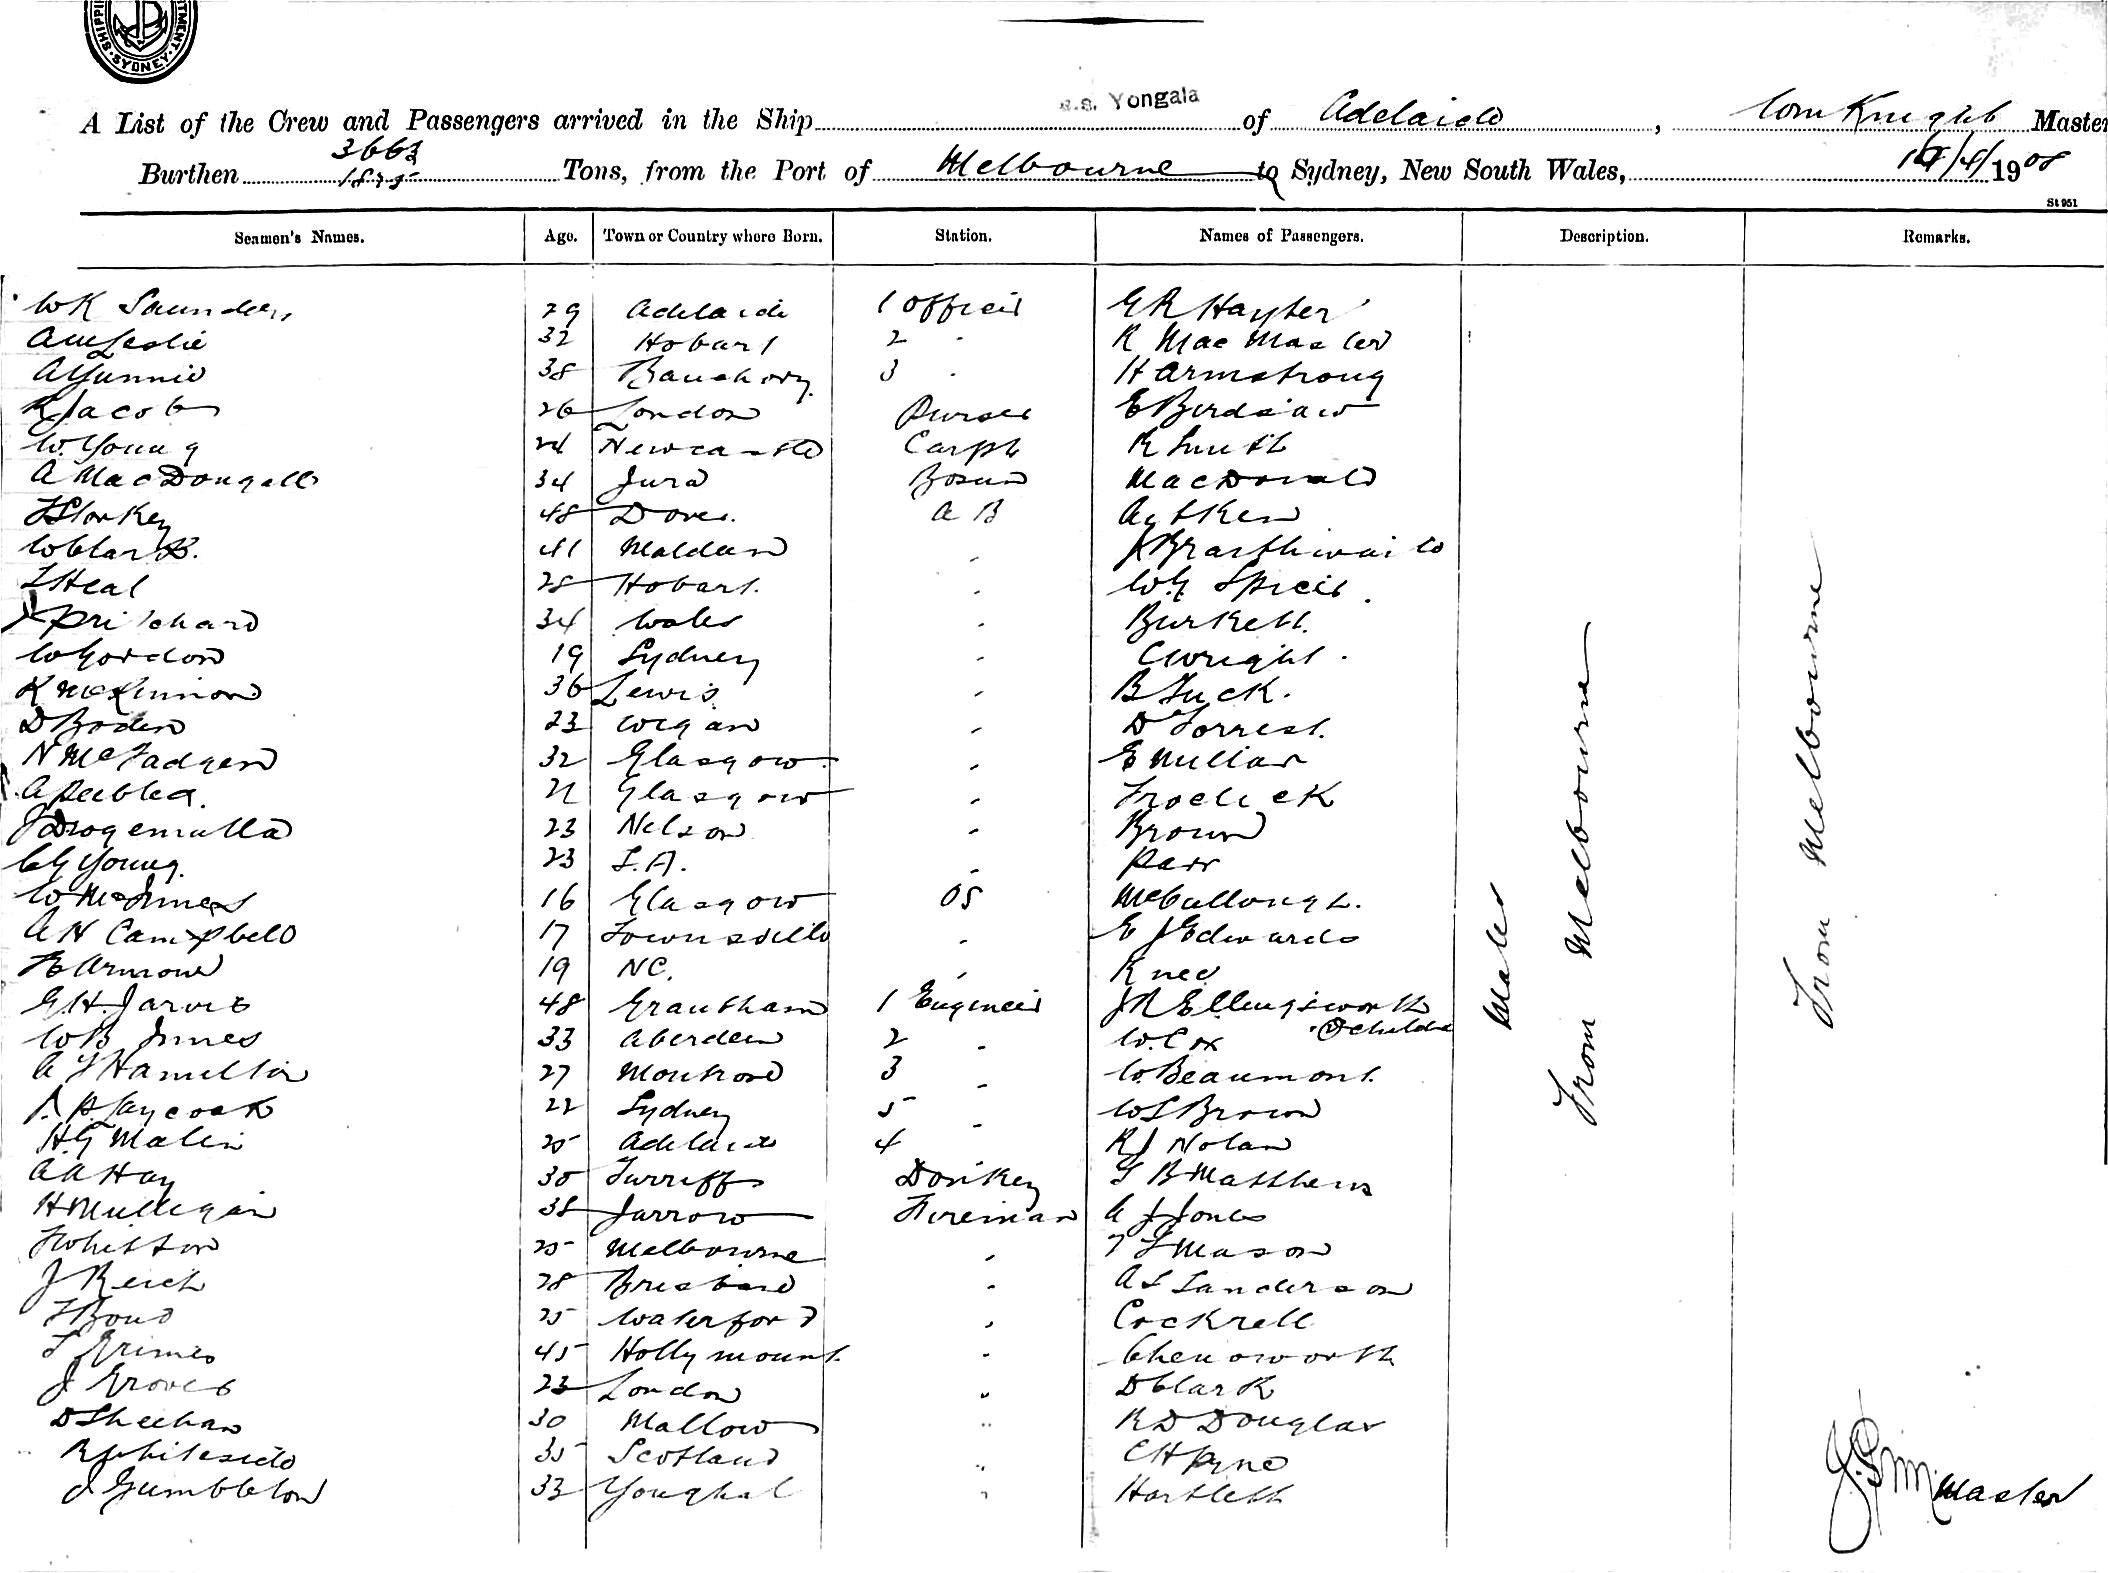 SHIPPING DEPARTMENT SYDNEY
A List of the Crew and Passengers arrived in the Ship s.s. Yongala of Adelaide, Wm Knight Master
Burthen 3663 Tons, from the Port of Melbourne to Sydney, New South Wales, /4/1908
1825
St 951
Seamen's Names. Age. Town or Country where Born. Station. Names of Passengers. Description. Remarks.
W K Saunders 29 Adelaide 1 Officer G R Hayter
A M Leslie 32 Hobart 2 " R MacMaster
A Gunnie 38 Banchory 3 " H Armstrong
R Jacobs 26 London Purser E Birdsaw
W. Young 24 Newcastle Carptr R Smith
A MacDougall 34 Jura Bosun MacDonald
Storkey 48 Dover. A B Aytken
W Clark. 41 Maldon " J Braithwaite
Heal 28 Hobart. " W.G Speir.
J Pritchard 34 Wales " Burkett.
W Gordon 19 Sydney " C Wright.
K McKinnon 36 Lewis " B Tuck.
D Boden 23 Wigan " D Forrest.
N McFadgen 32 Glasgow " E Millar
A Peebles. 21 Glasgow "
J Drogemulla 23 Nelson " Brown
C G Young. 23 S.A. " Parr
W McInnes 16 Glasgow OS McCullough.
A N Campbell 17 Townsville " E J Edwards
E Armour 19 NC. " Knee
G.H. Jarvis 48 Grantham 1 Engineer J R Ellingsworth
W B Innes 33 Aberdeen 2 " W. Cox
A F Hamilton 27 Montrose 3 " W. Beaumont.
Laycock 22 Sydney 5 " W S Brown
H.G Malin 25 Adelaide 4 R J Nolan
A A Hay 30 Turriff Donkey G B Matthews
H Mulligan 38 Jarrow Fireman A J Jones
Whitton 25 Melbourne " T S Mason
J Reich 28 Brisbane " A S Sanderson
Bond 25 Waterford " Cockrell
Grimes 45 Hollymount. " Chenoworth
J Groves 23 London " D Clark
D Sheehan 30 Mallow " R D Douglas
R Whiteside 35 Scotland " C H Pyne
J Gumbleton 33 Youghal " Hartlett
Males
From Melbourne
From Melbourne
Master